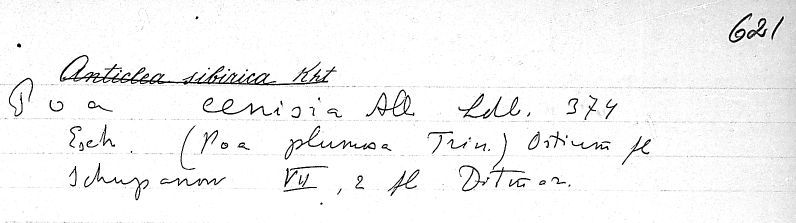 621
Anticlea sibirica Knt
Poa cenisia All Ldb. 374
Esch. (Poa plumosa Trin.) Ostium fl
Schupanow VII, 2 fl Ditmar.